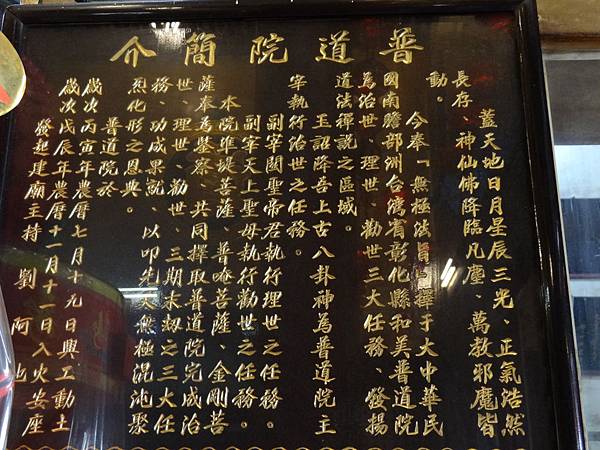 普道院簡介
蓋天地日月星辰三光、正氣浩然
長存、神仙佛降臨凡塵、萬教邪魔皆
動。
今奉「無極法旨」擇于大中華民
國南贍部洲台灣省彰化縣和美普道院
為治世、理世、勸世三大任務、發揚
道法禪說之區域。
玉詔降吾上古八卦神為普道院主
宰執行治世之任務。
副宰關聖帝君執行理世之任務。
副宰天上聖母執行勸世之任務。
本院准堤菩薩、普唵菩薩、金剛菩
薩奉為鑒察、共同擇取普道院完成治
世、理世、勸世、三期末劫之三大任
務、功成果就、以叩先天無極混沌聚
烈化形之恩典。
普道院於
歲次丙寅年農曆七月十九日興工動土
歲次戊辰年農曆十一月十一日入火安座
發起建廟主持 劉阿也